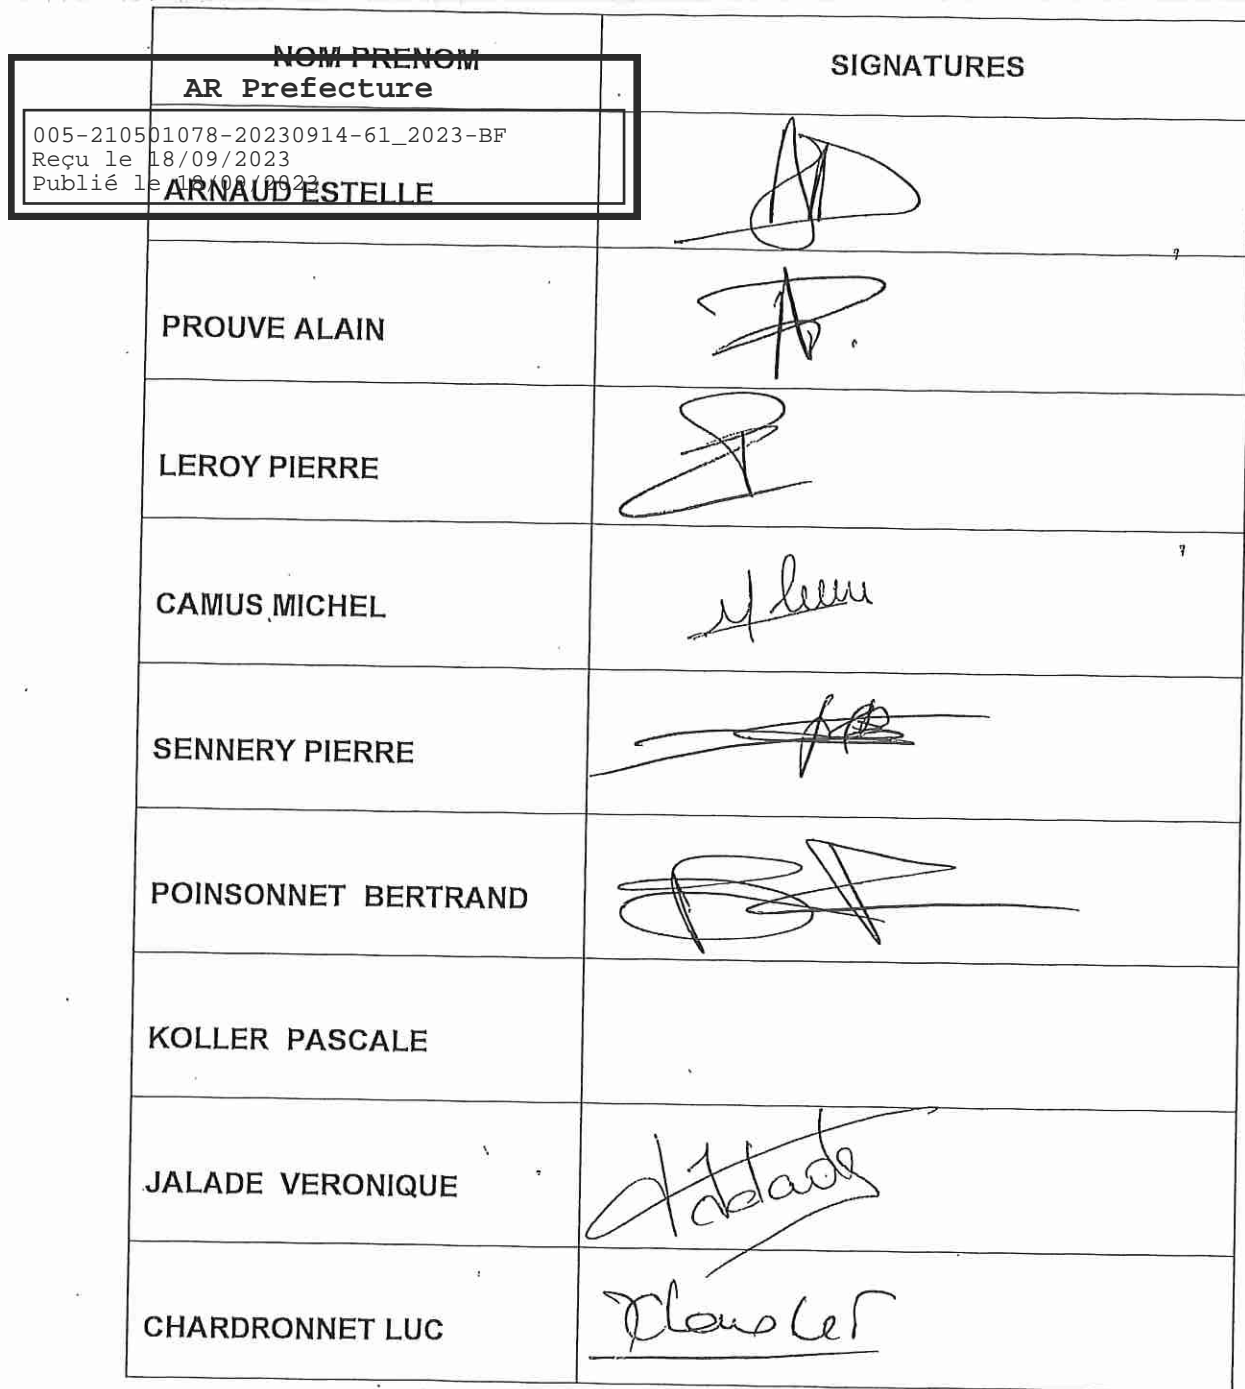 NOM PRENOM
SIGNATURES
AR Prefecture
005-210501078-20230914-61_2023-BF
Reçu le 18/09/2023
Publié le 18/09/2023
ARNAUD ESTELLE
PROUVE ALAIN
LEROY PIERRE
CAMUS MICHEL
SENNERY PIERRE
POINSONNET BERTRAND
KOLLER PASCALE
JALADE VERONIQUE
CHARDRONNET LUC